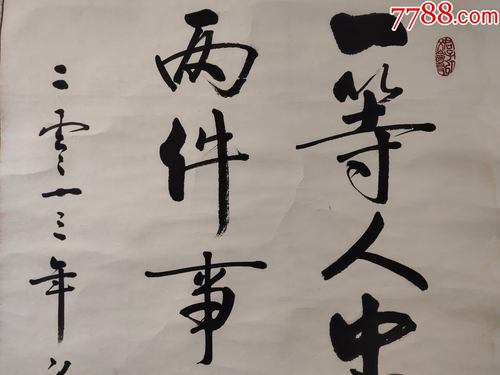 7788.com
一等人忠
两件事
二零一三年